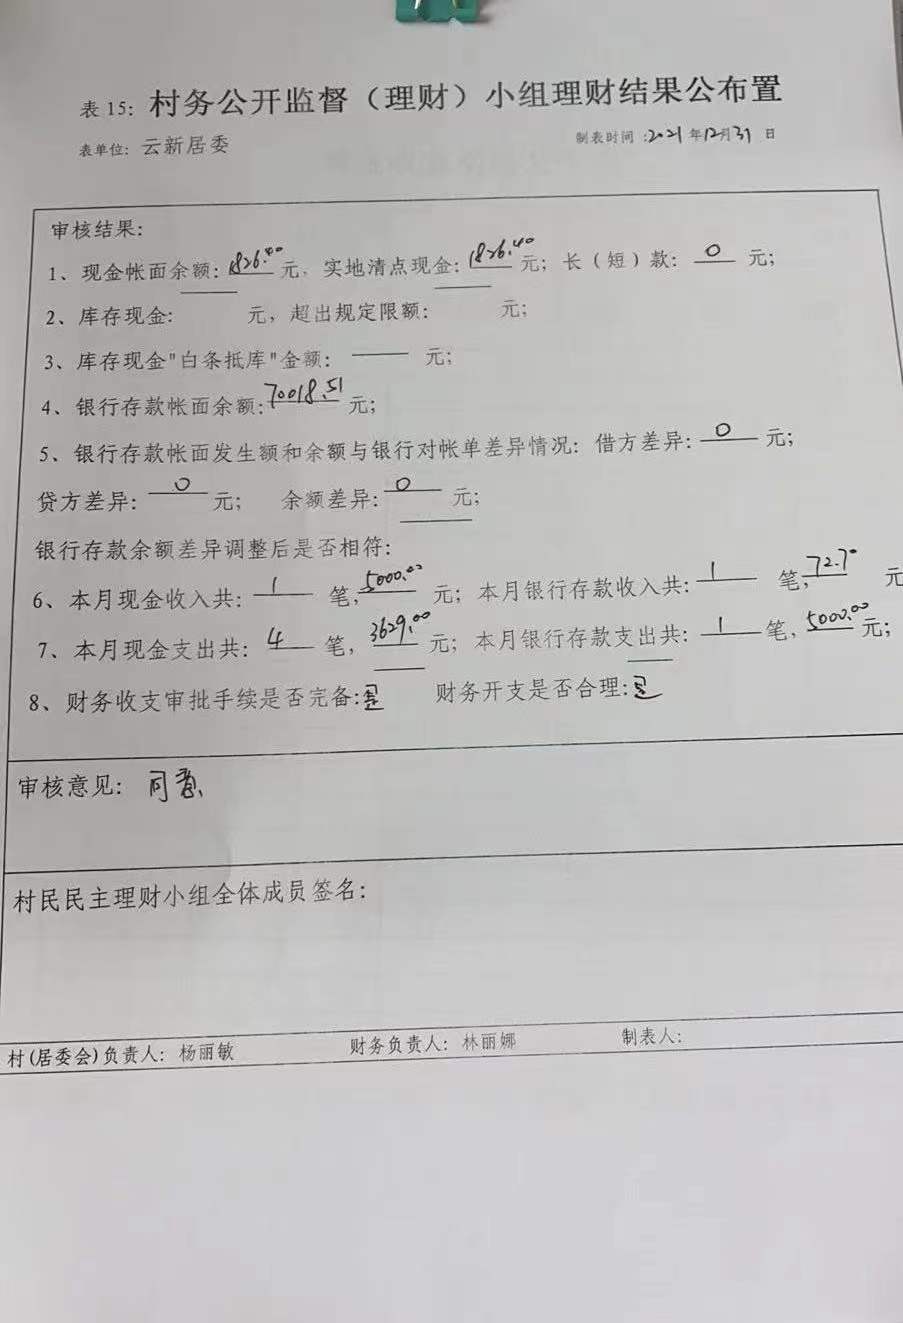 表 15: 村务公开监督（理财）小组理财结果公布置
表单位: 云新居委 制表时间:2021年12月31日
审核结果:
1、现金帐面余额: 1826.40 元，实地清点现金: 1826.40 元; 长（短）款: 0 元;
2、库存现金: 元，超出规定限额: 元;
3、库存现金"白条抵库"金额: —— 元;
4、银行存款帐面余额: 70018.51 元;
5、银行存款帐面发生额和余额与银行对帐单差异情况: 借方差异: 0 元;
贷方差异: 0 元; 余额差异: 0 元;
银行存款余额差异调整后是否相符:
6、本月现金收入共: 1 笔, 5000.00 元; 本月银行存款收入共: 1 笔, 72.70 元
7、本月现金支出共: 4 笔, 3629.00 元; 本月银行存款支出共: 1 笔, 5000.00 元;
8、财务收支审批手续是否完备: 是 财务开支是否合理: 是
审核意见: 同意
村民民主理财小组全体成员签名:
村(居委会)负责人: 杨丽敏 财务负责人: 林丽娜 制表人: